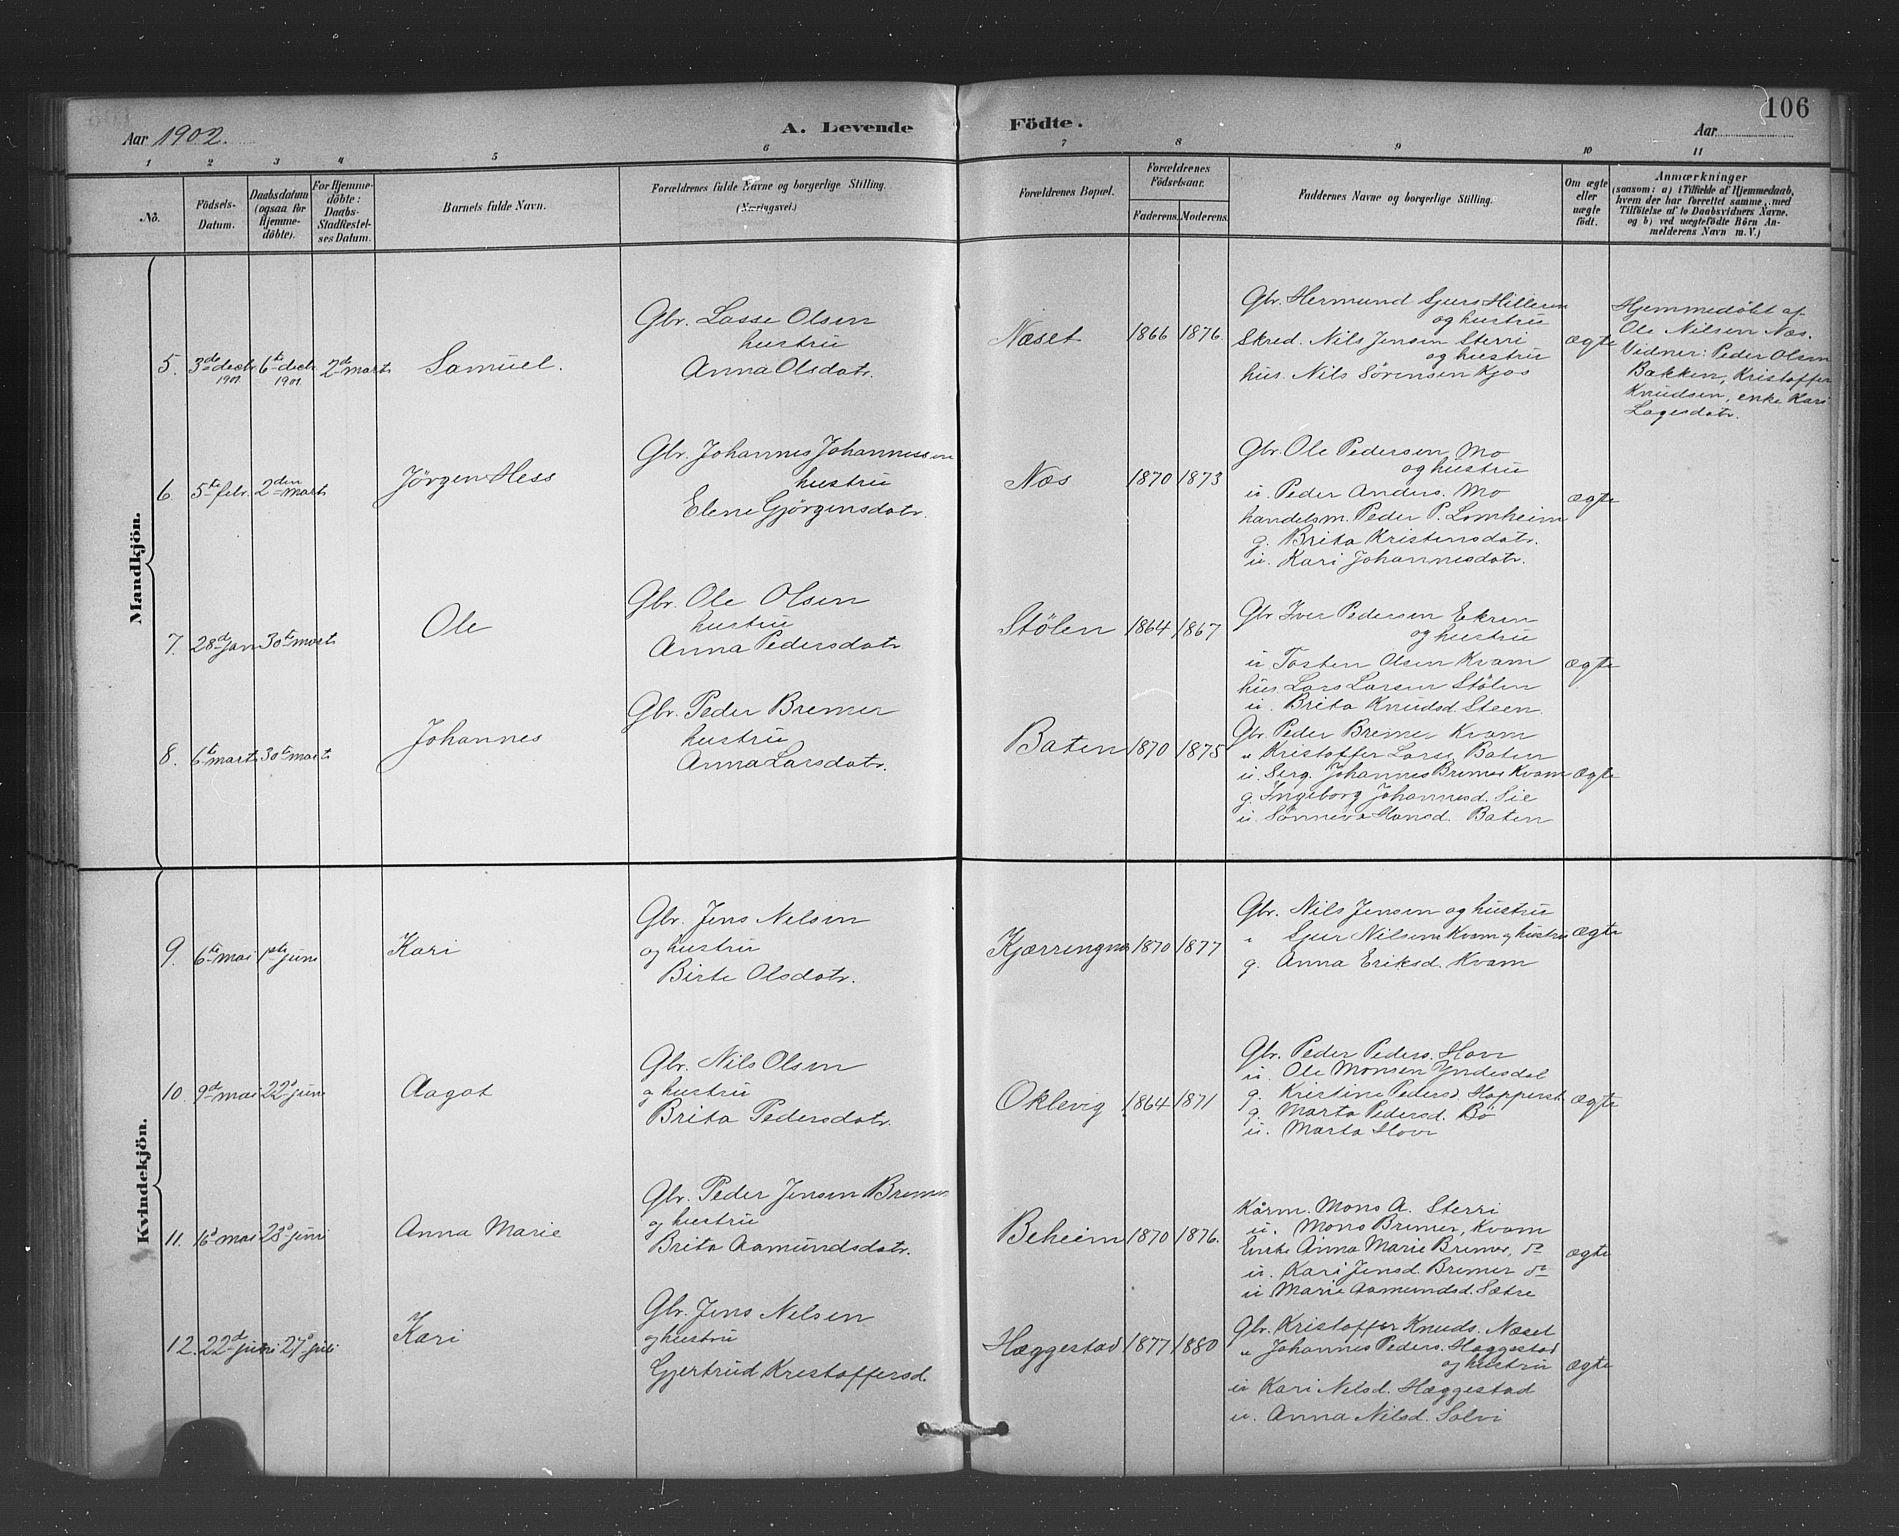 106
Aar 1902.
A. Levende Födte.
Aar
1 2 3 4 5 6 7 8 9 10 11
No.
Födsels-Datum.
Daabsdatum (ogsaa for Hjemme-döbte).
For Hjemme-döbte: Daabs-Stadfestel-ses Datum.
Barnets fulde Navn.
Forældrenes fulde Navne og borgerlige Stilling.
(Næringsvei.)
Forældrenes Bopæl.
Forældrenes Födselsaar.
Faderens. Moderens.
Faddernes Navne og borgerlige Stilling.
Om ægte eller uægte födt.
Anmærkninger
(saasom: a) i Tilfælde af Hjemmedaab,
hvem der har forrettet samme, med
Tilföielse af to Daabsvidners Navne,
og b) ved uægtefödte Börn An-
melderens Navn m. V.)
Mandkjön.
5. 3de decbr. 1901 6te decbr. 1901 2den marts Samuel.
Gbr. Lasse Olsen
hustru
Anna Olsdatr.
Næset 1866 1876
Gbr. Hermund Sjurs Hilleren
og hustru
Skred. Nils Jensen Sterri
og hustru
hus. Nils Sörensen Kjos
ægte
Hjemmedöbt af
Ole Nilsen Næs.
Vidner: Peder Olsen
Bakken, Kristoffer
Knudsen, enke Kari
Lagesdatr.
6 5te febr. 2den marts Jörgen Hess
Gbr. Johannes Johannessen
hustru
Elene Gjörgensdatr.
Næs 1870 1873
Gbr. Ole Pedersen Mo
og hustru
u. Peder Anders. Mo
handelsm. Peder P. Lomheim
g. Brita Kristensdatr.
u. Kari Johannesdatr.
ægte
7. 28de jan 30te marts Ole
Gbr. Ole Olsen
hustru
Anna Pedersdatr
Stölen 1864 1867
Gbr Iver Pedersen Ekren
og hustru
u Tosten Olsen Kvam
hus Lars Larsen Stölen
u. Brita Knudsd. Steen
ægte
8. 6te marts 30te marts Johannes
Gbr. Peder Bremer
hustru
Anna Larsdatr.
Baten 1870 1875
Gbr. Peder Bremer Kvam
" Kristoffer Lars. Baten
u. Serg. Johannes Bremer Kvam
g. Ingeborg Johannesd. Sie
u. Sönneva Hansd. Baten
ægte
Kvindekjön.
9. 6te mai 1ste juni Kari
Gbr. Jens Nilsen
og hustru
Birte Olsdatr.
Kjærringnes 1870 1877
Gbr. Nils Jensen og hustru
" Sjur Nilsen Kvam og hustru
g. Anna Eriksd. Kvam
ægte
10. 9de mai 22de juni Aagot
Gbr. Nils Olsen
og hustru
Brita Pedersdatr.
Oklevig 1864 1871
Gbr. Peder Peders. Hove
u. Ole Monsen Yndesdal
g. Kristine Pedersd Hopperst.
g. Marta Pedersd. Bö
u. Marta Hove
ægte
11. 16d mai 28d juni Anna Marie
Gbr. Peder Jensen Bremer
og hustru
Brita Aamundsdatr.
Beheim 1870 1876.
Kårm. Mons A. Sterri
u. Mons Bremer, Kvam
Enke Anna Marie Bremer, do
u. Kari Jensd. Bremer do
u Marie Aamundsd. Sætre
ægte
12. 22de juni 27d juli Kari
Gbr. Jens Nilsen
og hustru
Gjertrud Kristoffersd.
Hæggestad 1877 1880
Gbr. Kristoffer Knuds. Næset
" Johannes Peders. Hæggestad
og hustru
u Kari Nilsd. Hæggestad
u. Anna Nilsd. Solvi
ægte